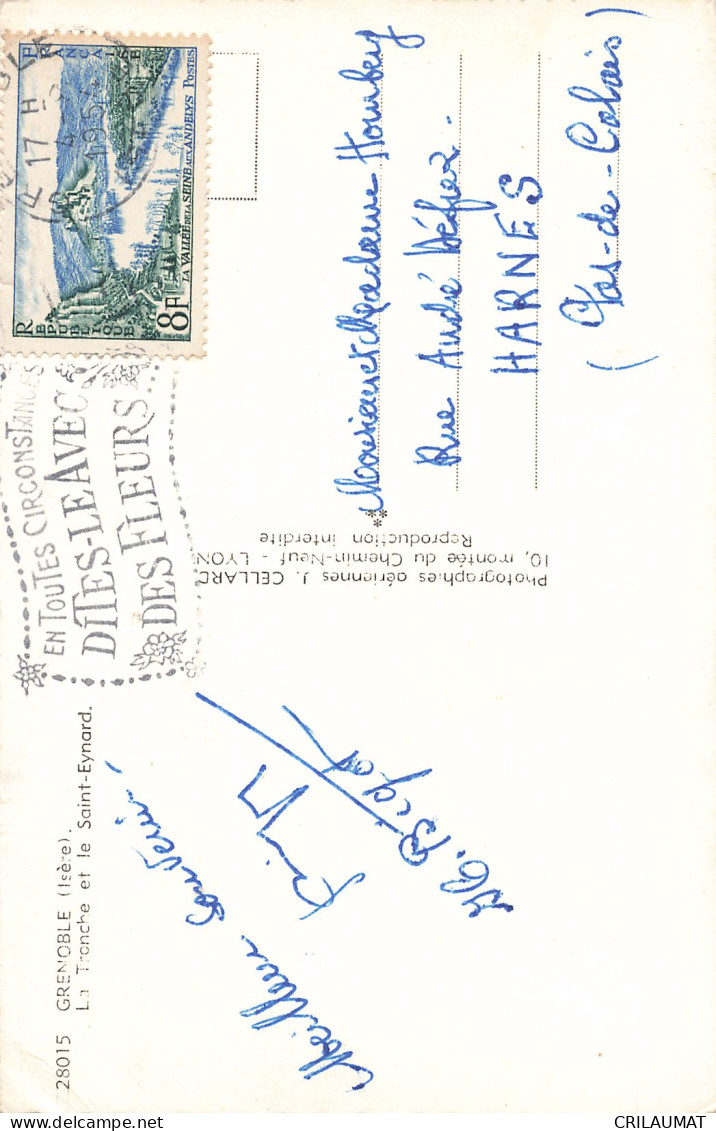 28015 GRENOBLE (Isère).
La Tronche et le Saint-Eynard.
Meilleur Souvenir,
Photographies aériennes J. CELLARD
10, montée du Chemin-Neuf - LYON
Reproduction interdite
EN TOUTES CIRCONSTANCES
DITES-LE AVEC
DES FLEURS
17 H
4
RÉPUBLIQUE FRANÇAISE
POSTES
LA VALLÉE DE LA SEINE AUX ANDELYS
8F
Monsieur et Madame
Rue André
HARNES
(Pas-de-Calais)
CRILAUMAT